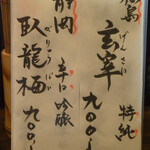 福島
玄宰
げんさい
特純
九〇〇
静岡
臥龍梅
がりゅうばい
辛口吟醸
九〇〇